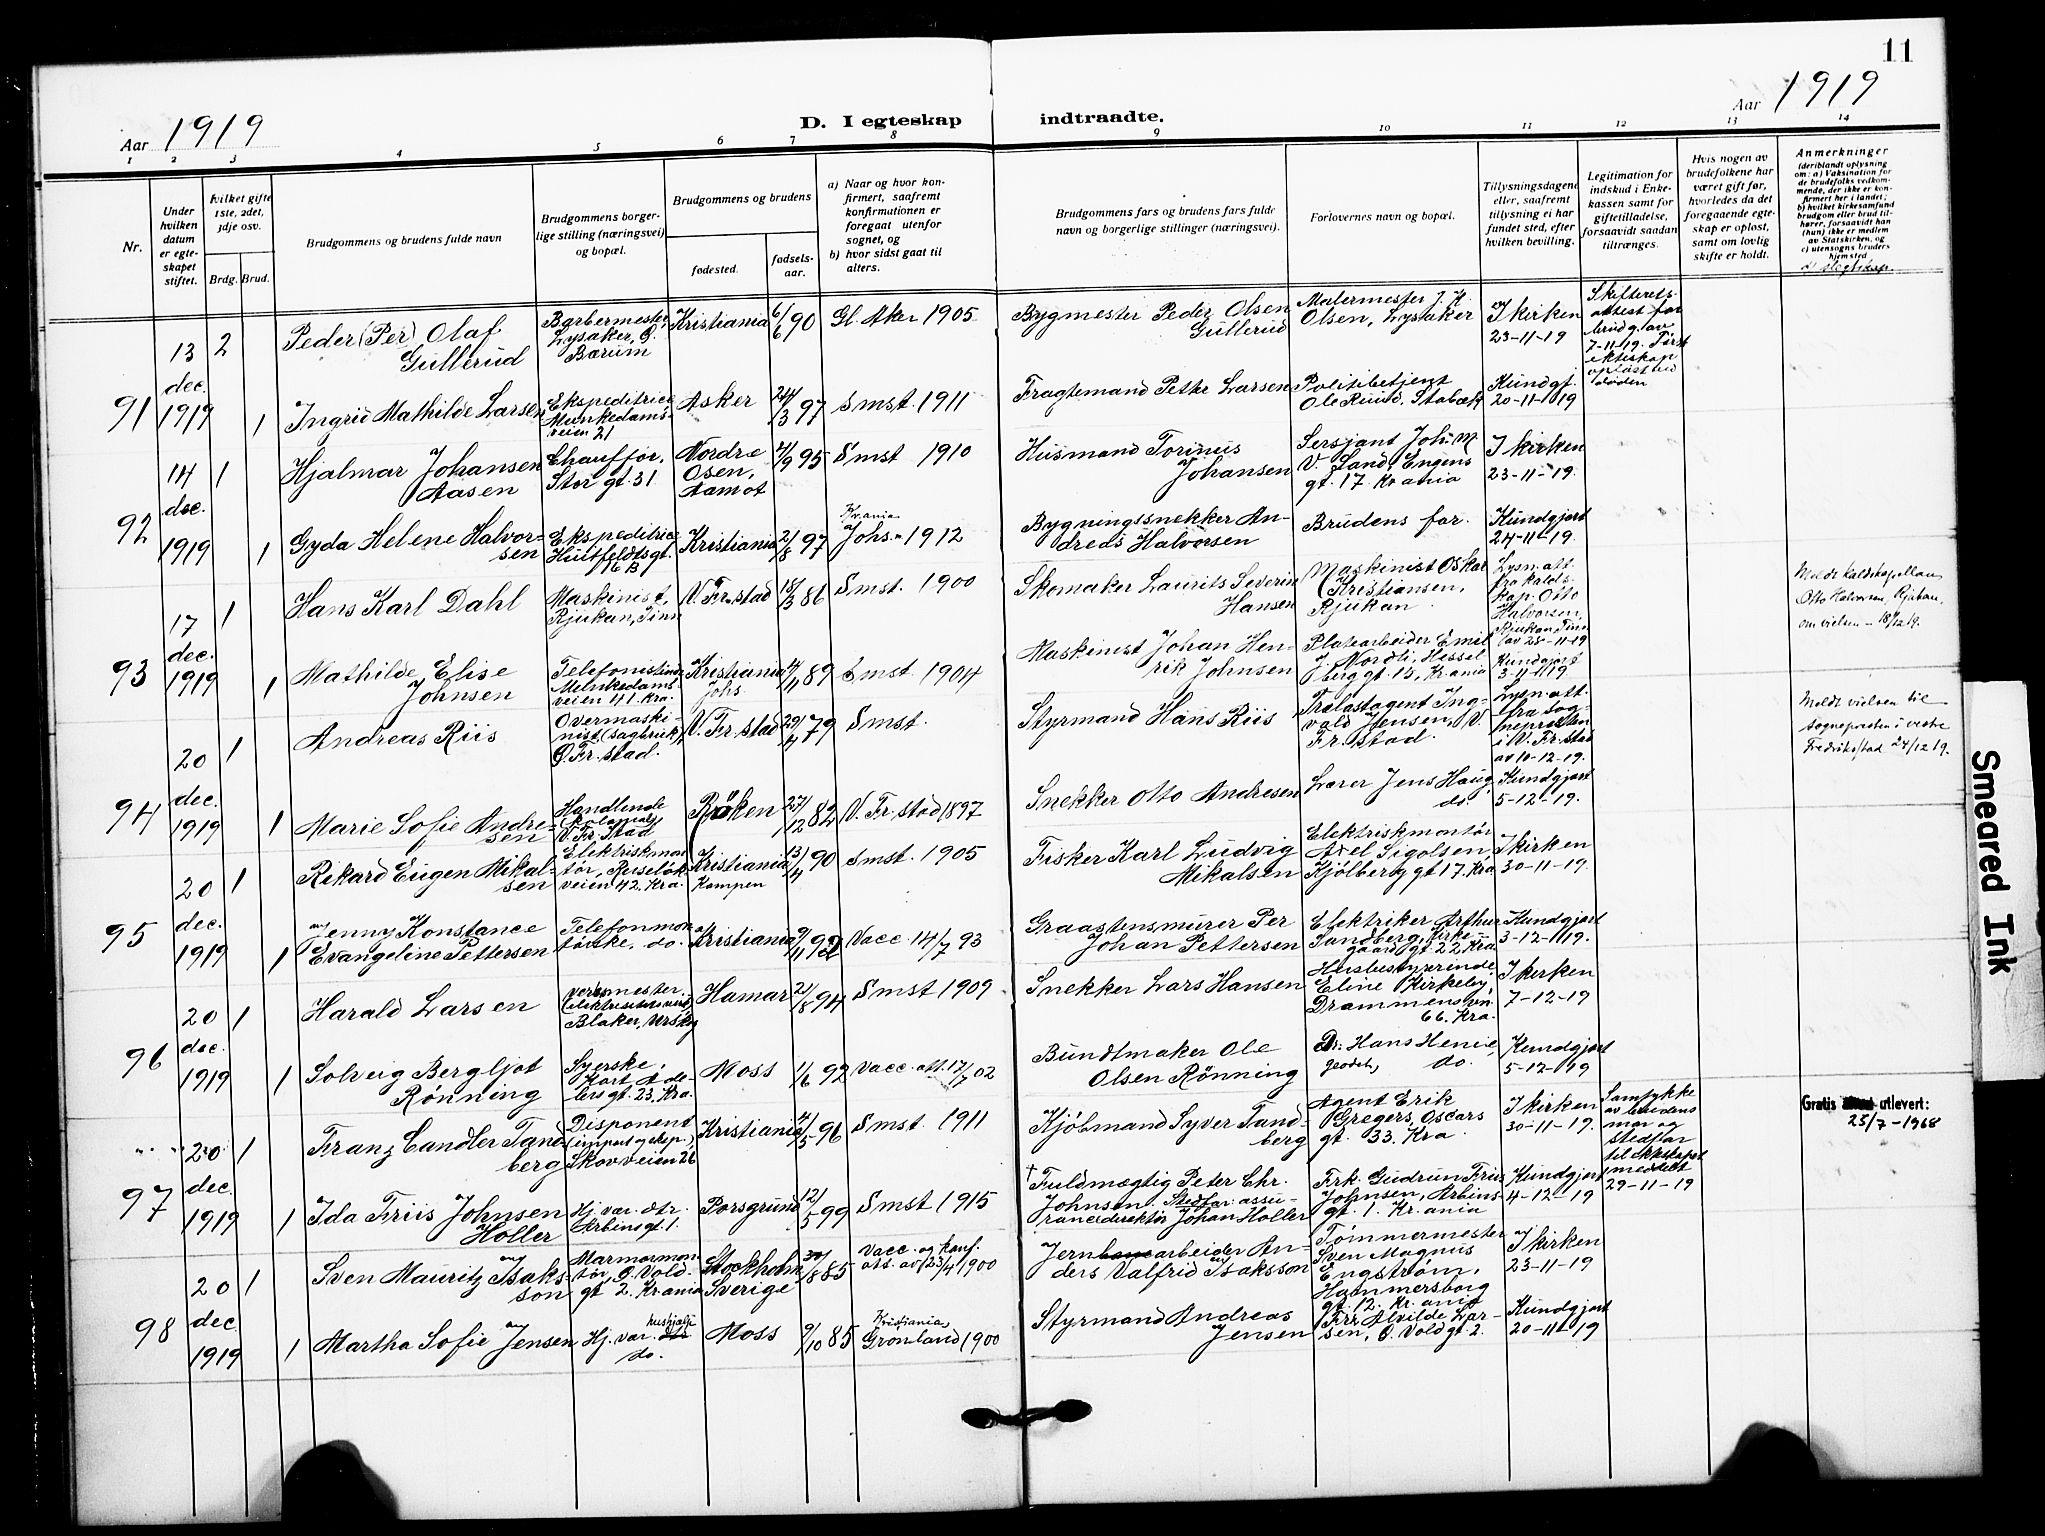 11
Aar 1919
D. I egteskap indtraadte.
Aar 1919
1 2 3 4 5 6 7 8 9 10 11 12 13 14
Nr.
Under hvilken datum er egte-skapet stiftet.
hvilket gifte 1ste, 2det, 3dje osv.
Brdg. Brud.
Brudgommens og brudens fulde navn
Brudgommens borger-lige stilling (næringsvei) og bopæl.
Brudgommens og brudens
fødested.
fødsels-aar.
a) Naar og hvor kon-firmert, saafremt konfirmutionen er foregaat utenfor sognet, og
b) hvor sidst gaat til alters.
Brudgommens fars og brudens fars fulde navn og borgerlige stillinger (næringsvei).
Forlovernes navn og bopæl.
Tillysningsdagene eller, saafremt tillysning ei har fundet sted, efter hvilken bevilling.
Legitimation for indskud i Enke-kassen samt for giftetilladelse, forsaavidt saadan tiltrænges.
Hvis nogen av brudefolkene har været gift før, hvorledes da det foregaaende egte-skap er opløst, samt om lovlig skifte er holdt.
Anmerkninger
(deriblandt oplysning om: a) Vaksination for de brudefolks vedkom-mende, der ikke er kon-firmert her i landet; b) hvilket kirkesamfund brudgom eller brud til-hører, forsaavidt han (hun) ikke er medlem av Statskirken, og c) utensogns bruders hjemsted
d) slegtskap.
91
13 dec. 1919
2
Peder (Per) Olaf Gullerud
Barbermester, Lysaker, Ø. Bærum
Kristiania
6/6 90
Gl. Aker 1905
Bygmester Peder Olsen Gullerud
Malermester J. K. Olsen, Lysaker
I kirken 23-11-19
Skifterets-attest for brudg. av 7-11-19. Først ekteskap opløst ved døden
1
Ingrid Mathilde Larsen
Ekspeditrice Munkedams-veien 21
Asker
24/3 97
Smst. 1911
Fragtemand Petter Larsen
Politibetjent Ole Ruud, Stabæk
Kundgj. 20-11-19
92
14 dec. 1919
1
Hjalmar Johansen Aasen
Chauffør, Stor gt. 31
Nordre Osen, Aamot
4/9 95
Smst 1910
Husmand Torinus Johansen
Sersjant Joh. M. V. Sand, Engens gt. 17. Kr.ania
I kirken 23-11-19.
1
Gyda Helene Halvor-sen
Ekspeditrice Huitfeldtsgt. 16 B
Kristiania
2/8 97
Kr.ania Johs. 1912
Bygningssnekker An-dreas Halvorsen
Brudens far.
Kundgjort 24-11-19.
93
17 dec. 1919
1
Hans Karl Dahl
Maskinist, Rjukan, Tinn
V. Fr.stad
15/3 86
Smst. 1900
Skomaker Laurits Severin Hansen
Maskinist Oskar Kristiansen, Rjukan
Lysn.att. fra kalds-kap. Otto Halvorsen, Rjukan Tinn av 28-11-19
Meldt kaldskapellan Otto Halvorsen, Rjukan, om vielsen - 18/12 19.
1
Mathilde Elise Johnsen
Telefonistinde Munkedams-veien 41 Kra.
Kristiania Johs.
4/11 89
Smst 1904
Maskinist Johan Hen-rik Johnsen
Platearbeider Emil J. Nordli, Hessel berg gt. 15, Kr.ania
Kundgjort 3-11-19.
94
20 dec. 1919
1
Andreas Riis
Overmaski-nist (sagbruk), Ø. Fr. stad.
V. Fr. stad
29/4 79
Smst.
Styrmand Hans Riis
Trælastagent Ing-vald Jensen, V. Fr. stad.
Lysn.att. fra sog-nepresten i V. Fr. stad av 10-12-19.
Meldt vielsen til sognepresten i vestre Fredrikstad 24/12 19.
1
Marie Sofie Andre-sen
Handlende (kolonial) V. Fr. Stad
Røken
27/12 82
V. Fr. stad 1897
Snekker Otto Andresen
Lærer Jens Haug do.
Kundgjort 5-12-19.
95
20 dec. 1919
1
Rikard Eugen Mikal-sen
Elektriskmon-tør, Ruseløk-veien 42. Kra.
Kristiania Kampen
13/4 90
Smst. 1905
Fisker Karl Ludvig Mikalsen
Elektriskmontør Axel Sigolsen, Kjølberg gt 17. Kra
I kirken 30-11-19.
1
Jenny Konstance Evangeline Pettersen
Telefonmon-tørske, do.
Kristiania
9/11 92
Vacc. 14/7 93
Graastensmurer Per Johan Pettersen
Elektriker Arthur Sandberg, Kirke-gaard gt. 22 Kra
Kundgjort 3-12-19.
96
20 dec. 1919
1
Harald Larsen
verksmester (elektrisitetsverk) Blaker, Urskog
Hamar
2/8 94
Smst 1909
Snekker Lars Hansen
Husbestyrerinde Eline Kirkeby, Drammensvn. 66. Kra.
I kirken 7-12-19
1
Solveig Bergljot Rønning
Syerske, Kort Ade-lers gt. 23, Kra.
Moss
1/6 92
Vacc. att. 17/7 02
Bundtmaker Ole Olsen Rønning
Dr. Hans Henie, geodet, do.
Kundgjort 5-12-19
97
20 dec. 1919
1
Franz Candler Tand-berg
Disponent (import og eksp.) Skovveien 26
Kristiania
4/5 96
Smst 1911
Kjøbmand Syver Tand-berg
Agent Erik Gregers, Oscars gt. 33. Kra.
I kirken 30-11-19.
Samtykke av brudens mor og stedfar til ekteskapet meddelt 29-11-19
Gratis utlevert: 25/7-1968
1
Ida Friis Johnsen Holler
Hj. vær. dtr. Arbinsgt. 1.
Porsgrund
12/5 99
Smst 1915
† Fuldmægtig Peter Chr. Johnsen, Stedfar: assu-rancedirektør Johan Holler
Frk. Gudrun Friis Johnsen, Arbins-gt. 1. Kr.ania
Kundgjort 4-12-19
98
20 dec 1919
1
Sven Mauritz Isaks-son
Marmormon-tør, Ø. Vold-gt 2. Kr.ania
Stockholm Sverige
30/8 85
Vacc. og konf. att. av 23/4 1900
Jernarbeider An-ders Valfrid Isaksson
Tømmermester Sven Magnus Engstrøm, Hammersborg gt. 12. Kr.ania
I kirken 23-11-19
1
Martha Sofie Jensen
Hj. vær. hushjelp do.
Moss
9/10 85
Kristiania, Grønland 1900
Styrmand Andreas Jensen
Fru Alvilde Lar-sen, Ø. Voldgt. 2.
Kundgjort 20-11-19
Smeared Ink